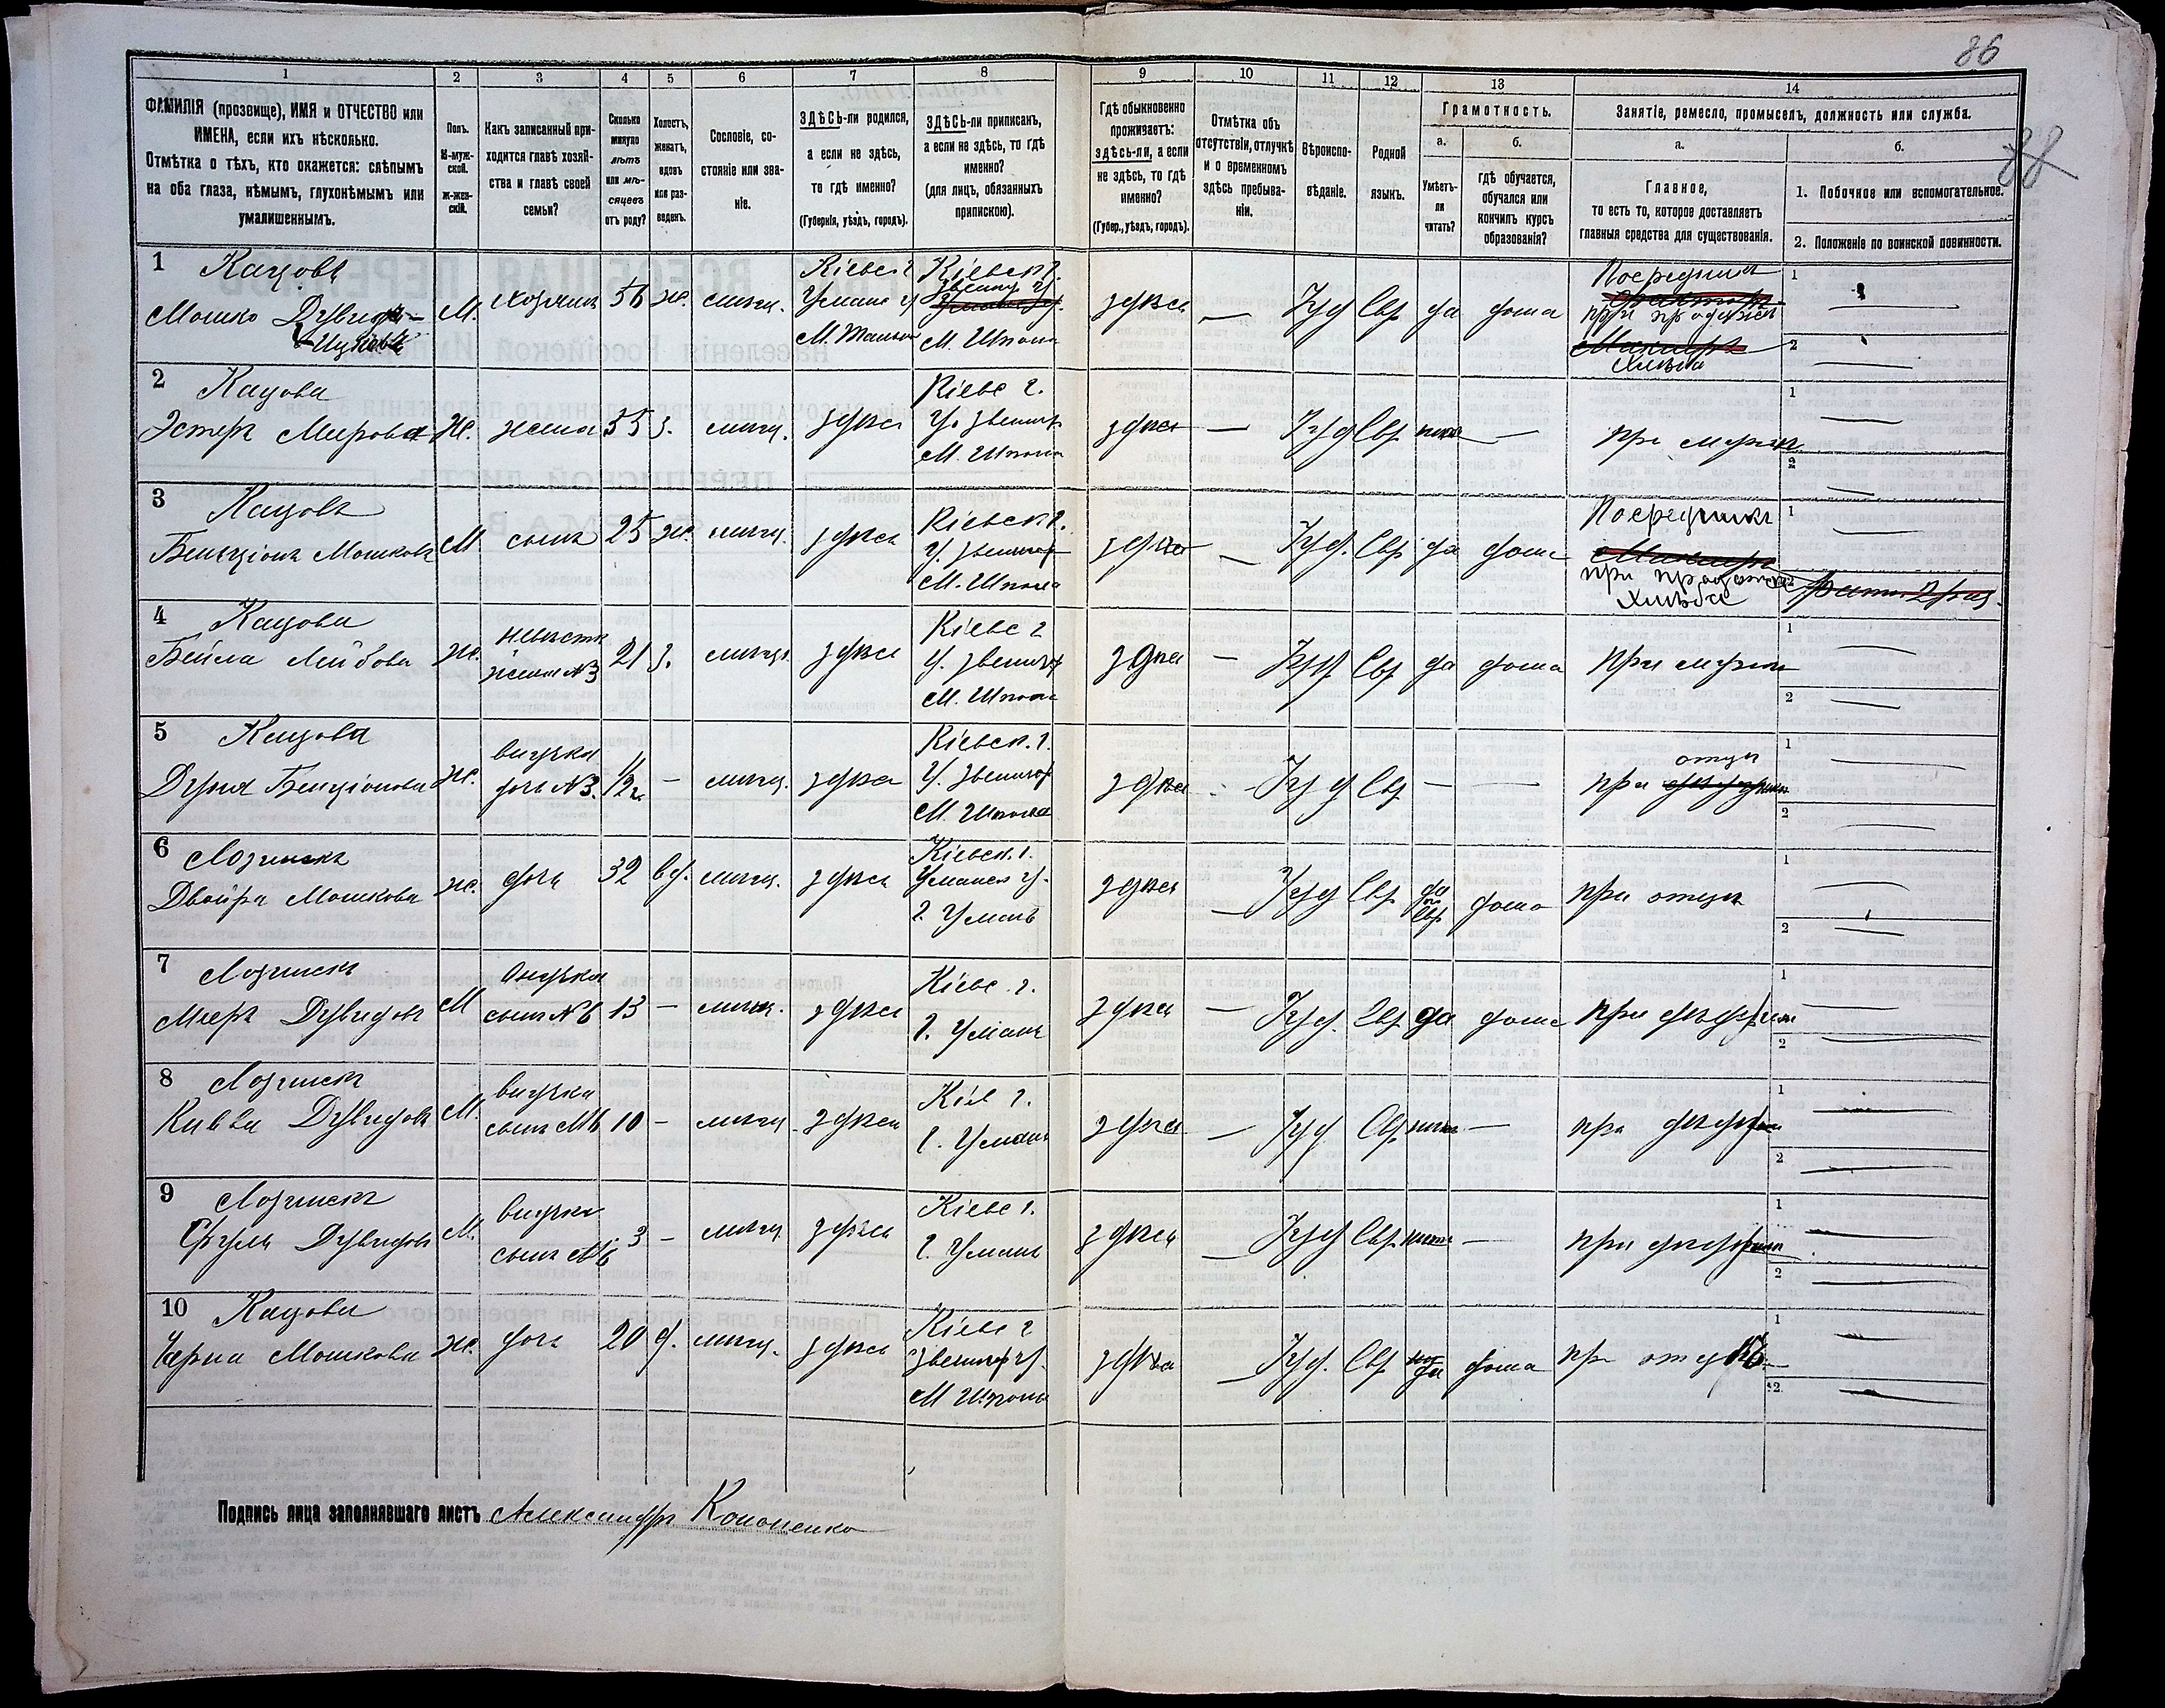 86
88
1
2
3
4
5
6
7
8
9
10
11
12
13
14
ФАМИЛІЯ (прозвище), ИМЯ и ОТЧЕСТВО или
ИМЕНА, если ихъ нѣсколько.
Отмѣтка о тѣхъ, кто окажется: слѣпымъ
на оба глаза, нѣмымъ, глухонѣмымъ или
умалишеннымъ.
Полъ.
М-муж-
ской.
Ж-жен-
скій.
Какъ записанный при-
ходится главѣ хозяй-
ства и главѣ своей
семьи?
Сколько
минуло
лѣтъ
или мѣ-
сяцевъ
отъ роду?
Холостъ,
женатъ,
вдовъ
или раз-
веденъ.
Сословіе, со-
стояніе или зва-
ніе.
ЗДѢСЬ-ли родился,
а если не здѣсь,
то гдѣ именно?
(Губернія, уѣздъ, городъ).
ЗДѢСЬ-ли приписанъ,
а если не здѣсь, то гдѣ
именно?
(для лицъ, обязанныхъ
припискою).
Гдѣ обыкновенно
проживаетъ:
здѣсь-ли, а если
не здѣсь, то гдѣ
именно?
(Губер., уѣздъ, городъ).
Отмѣтка объ
отсутствіи, отлучкѣ
и о временномъ
здѣсь пребыва-
ніи.
Вѣроиспо-
вѣданіе.
Родной
языкъ.
Грамотность.
а.
Умѣетъ-
ли
читать?
б.
гдѣ обучается,
обучался или
кончилъ курсъ
образованія?
Занятіе, ремесло, промыселъ, должность или служба.
а.
Главное,
то есть то, которое доставляетъ
главныя средства для существованія.
б.
1. Побочное или вспомогательное.
2. Положеніе по воинской повинности.
1 Кацовъ
Мошко Дувидъ-
Ицковъ
М. хозяинъ 56 ж. мѣщ.
Кіевс г
Уманс у
М. Тальное
Кіевск г.
Звениг у
М. Шпола
здѣсь — Іуд Евр да дома
Посредникъ
при продажѣ
Хлѣба
1
2
2 Кацова
Эстеръ Мирова Ж. жена 55 з. мѣщ. здѣсь
Кіевс г.
У. Звениг
М. Шпола
здѣсь — Іуд Евр —
при мужѣ
1
2
3 Кацовъ
Бенціонъ Мошковъ М. сынъ 25 ж. мѣщ. здѣсь
Кіевск г.
У. Звениг
М. Шпола
здѣсь — Іуд. Евр да дома
Посредникъ
при продажѣ
Хлѣба
1
2
4 Кацова
Бейла Лейбова ж.
невѣстк
жена №3
21 з. мѣщ. здѣсь
Кіевс г
У. Звениг
М. Шпола
здѣсь — Іуд Евр да дома при мужѣ
1
2
5 Кацова
Дуня Бенціонова ж.
внучка
дочь №3.
1/2 г. — мѣщ. здѣсь
Кіевск. г.
У. Звениг
М. Шпола
здѣсь - Іуд Евр — —
отцѣ
при
1
2
6 Лозинскъ
Двойра Мошкова ж. дочь 32 вд. мѣщ. здѣсь
Кіевск. г.
Уманск у.
г Умань
здѣсь — Іуд Евр
да
по
Евр
дома при отцѣ
1
2
7 Лозинскъ
Мееръ Дувидовъ М
Внучка
сынъ №6
13 — мѣщ. здѣсь
Кіевс. г.
г. Умань
здѣсь — Іуд. Евр да дома при
1
2
8 Лозинскъ
Кивва Дувидовъ М.
внучка
сынъ №6
10 — мѣщ здѣсь
Кіев г.
г. Умань
здѣсь — Іуд Евр —
при
1
2
9 Лозинскъ
Сруль Дувидовъ М.
внучка
сынъ №6
3 — мѣщ здѣсь
Кіевс г.
г. Умань
здѣсь — Іуд Евр —
при
1
2
10 Кацова
Черна Мошкова ж. дочь 20 д. мѣщ. здѣсь
Кіевс г
Звениг у.
М Шпола
здѣсь — Іуд. Евр да дома при отцѣ
1
2
Подпись лица заполнявшаго листъ Александръ Кононенко